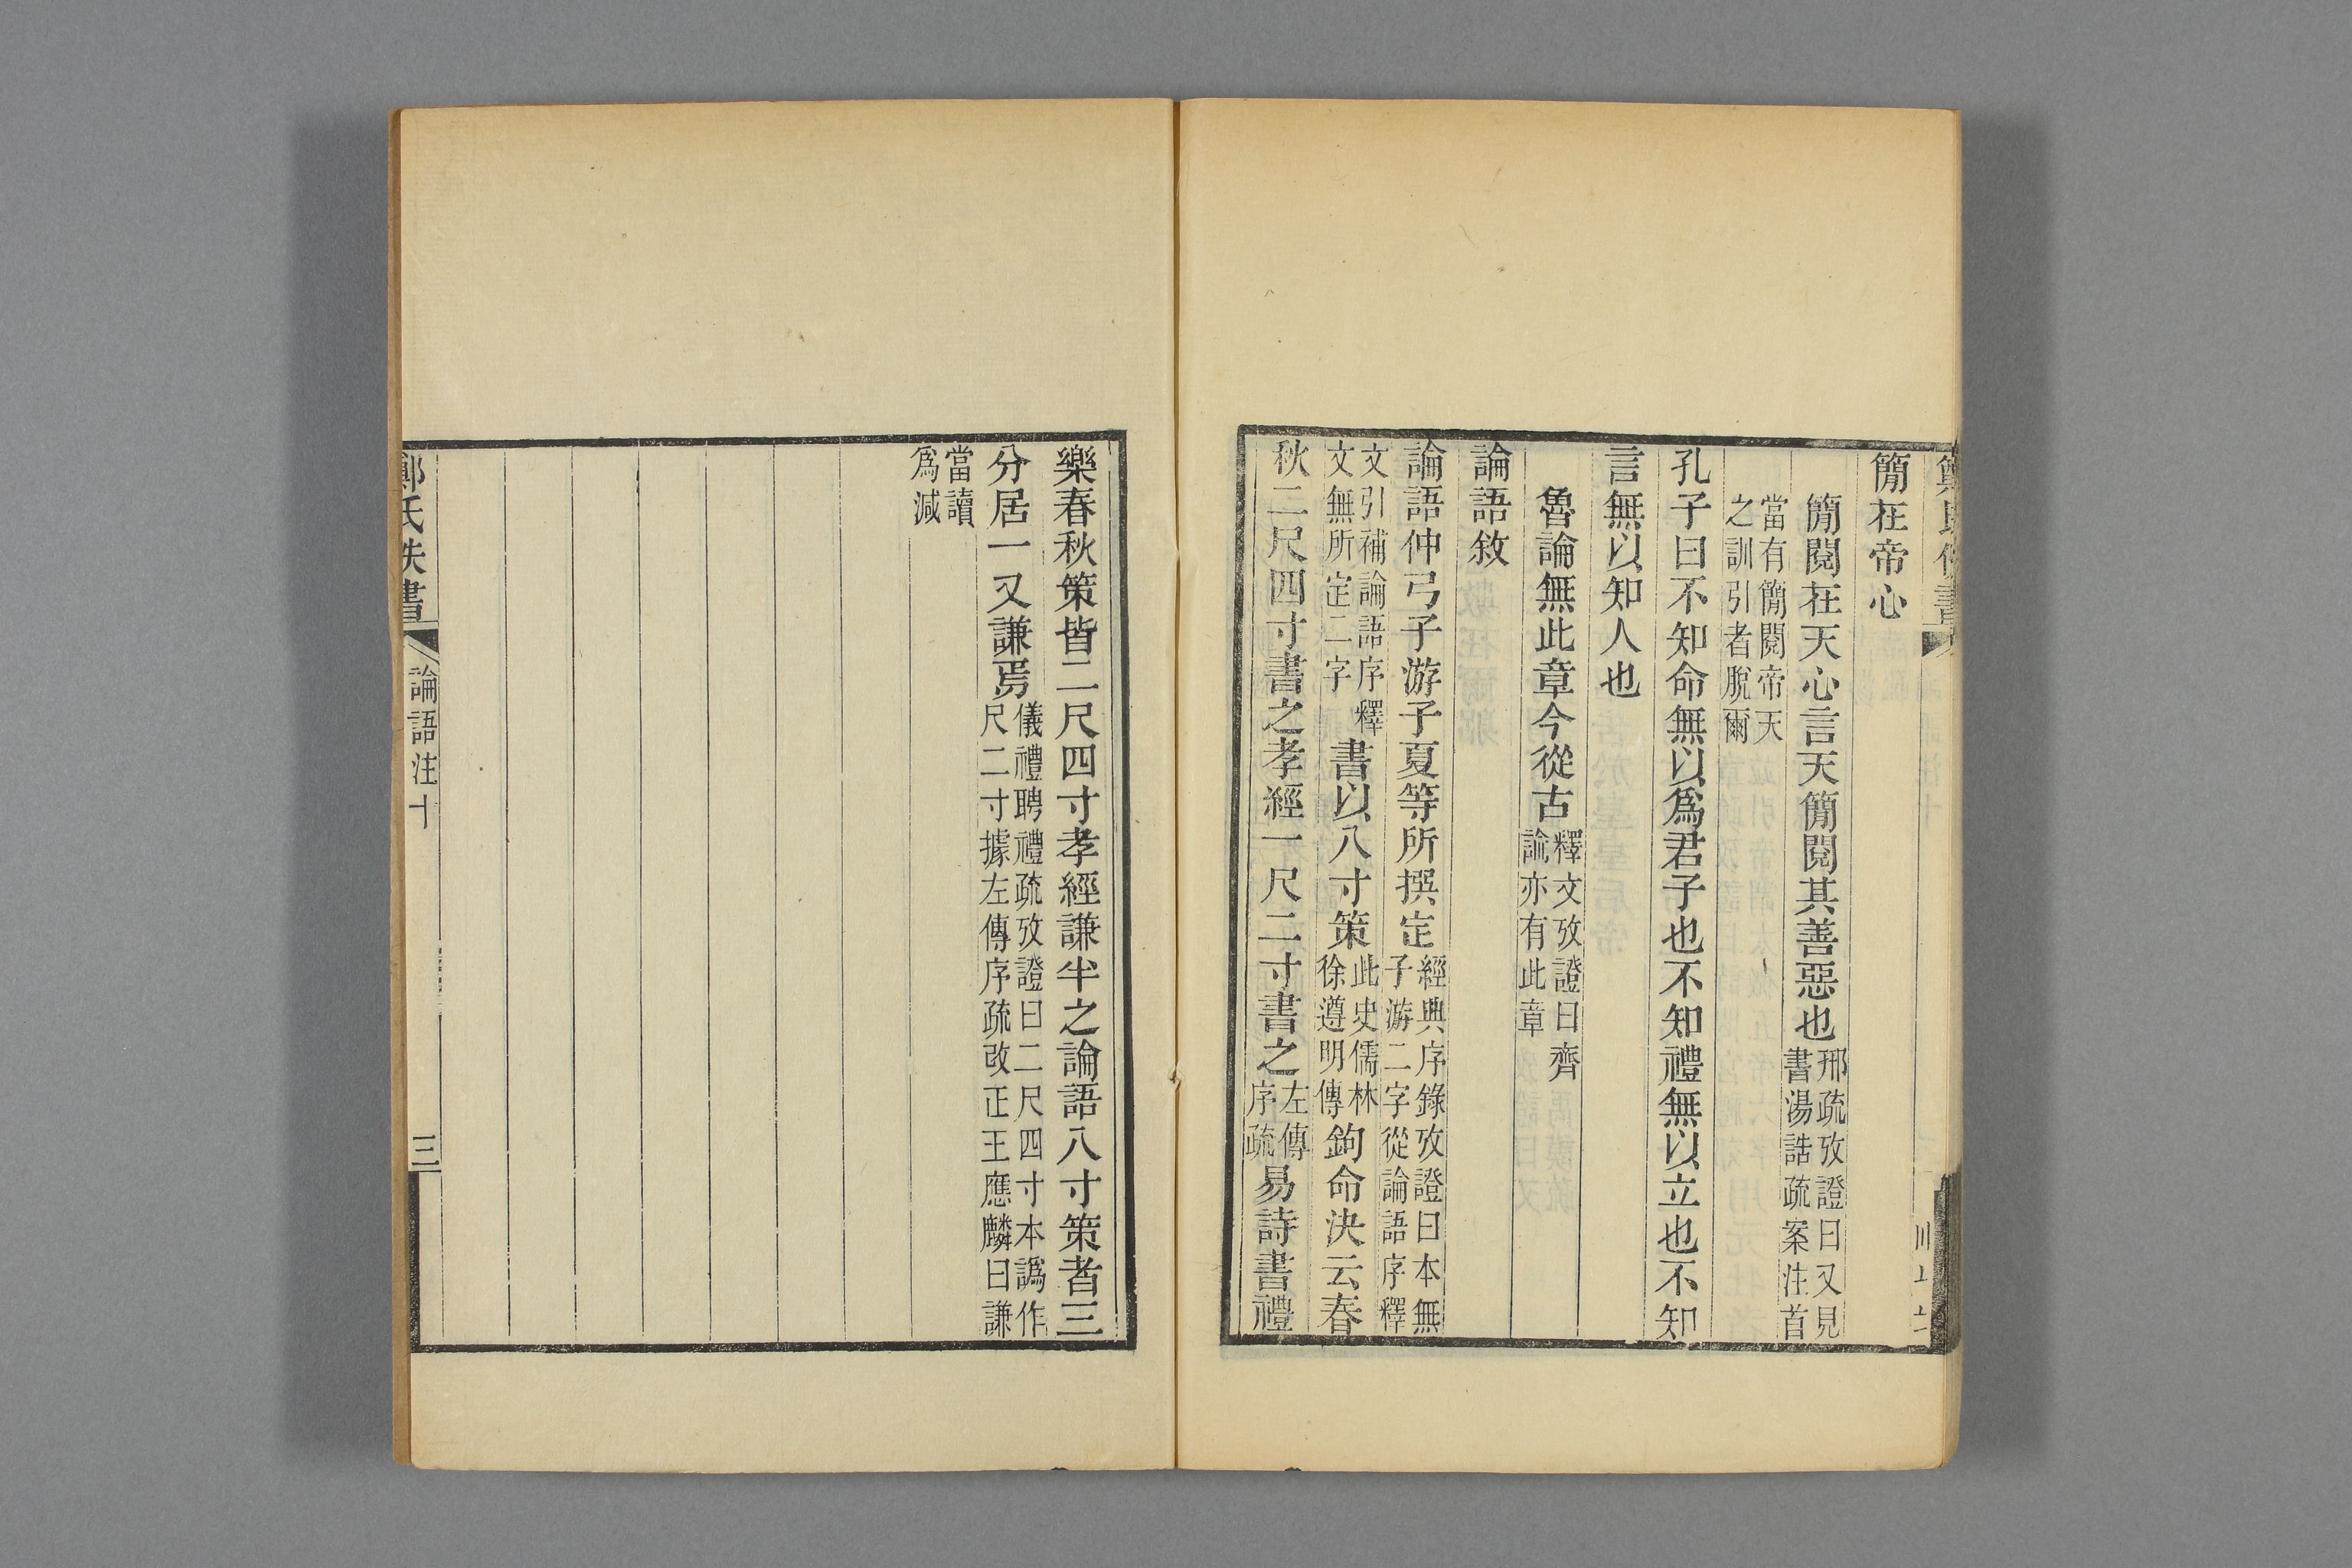 簡在帝心
簡閱在天心言天簡閱其善惡也邢疏攷證曰又見
書湯誥疏案注首
當有簡閱帝天
之訓引者脫爾
孔子曰不知命無以爲君子也不知禮無以立也不知
言無以知人也
魯論無此章今從古釋文攷證曰齊
論亦有此章
論語敘
論語仲弓子游子夏等所撰定經典序錄攷證曰本無
子游二字從論語序釋
文引補論語序釋
文無所定二字
書以八寸策此史儒林
徐遵明傳
鉤命決云春
秋二尺四寸書之孝經一尺二寸書之左傳
序疏
易詩書禮
樂春秋策皆二尺四寸孝經謙半之論語八寸策者三
分居一又謙焉儀禮聘禮疏攷證曰二尺四寸本譌作
尺二寸據左傳序疏改正王應麟曰謙
當讀
爲減
鄭氏佚書
論語注十
三